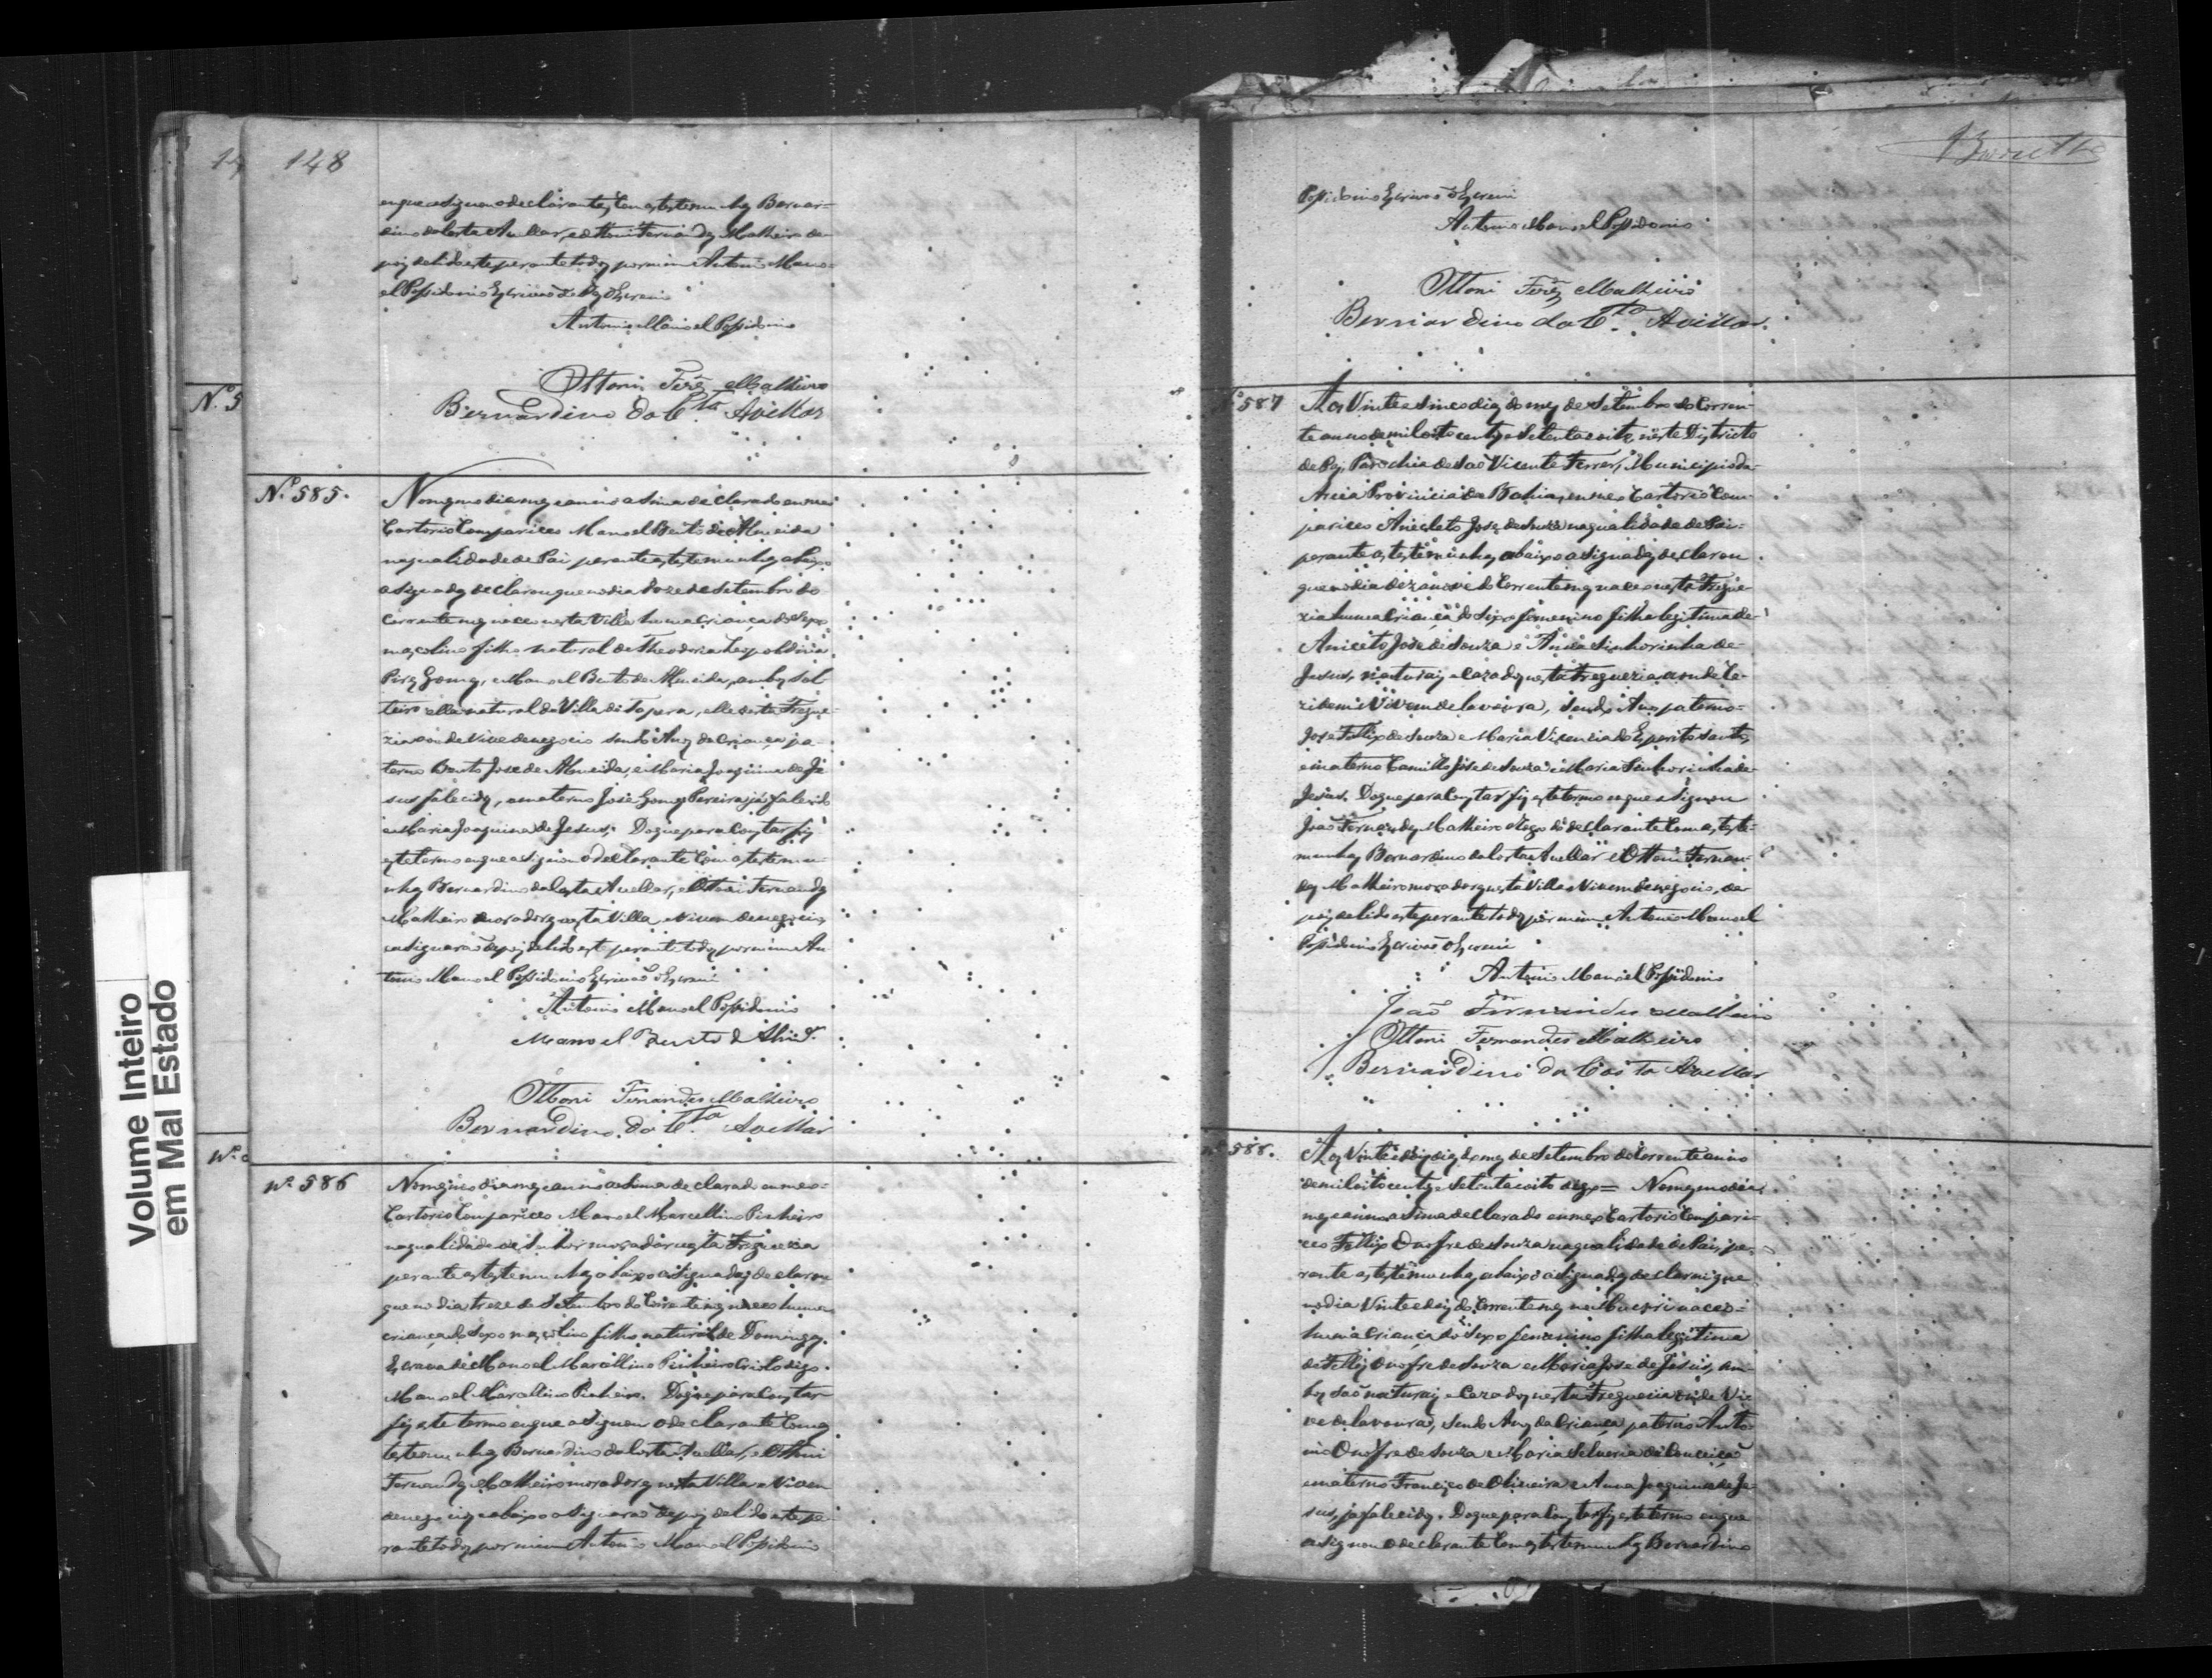 148
em que asignou o declarante, com as testemunhas Bernar-
dino da Costa Avellar, e Ottoni Fernandes Malheiro de-
pois de lido este perante todos por mim Antonio Mano-
el Possidonio Escrivão de Paz o Escrevi
Antonio Manoel Possidonio
Ottoni Ferz Malheiro
Bernardino da Cta Avellar
Nº 585.
No mesmo dia mes e anno asima declarado em meu
Cartorio Compariceo Manoel Bento de Almeida
na qualidade de Pai perante as testemunhas abaixo
asignadas declarou que no dia doze de Setembro do
corrente mes naceo nesta Villa huma criança do Sexo
mascolino filho natural de Theodoria Leopoldina
Pires Gomes, e Manoel Bento de Almeida, ambos Sol-
teiro ella natural da Villa de Tapera, elle desta Fregue-
zia aonde Vive de negocio sendo Avos da Criança pa-
terno Bento Jose de Almeida, e Maria Joaquina de Je-
sus falecidos, e materno José Gomes Pereira já falecido
e Maria Joaquina de Jesus; Do que para Constar fiz
este termo em que asignou o declarante Com as testemu-
nhas Bernardino da Costa Avellar, e Ottoni Fernandes
Malheiro moradores nesta Villa, e Vivem de negocios
e asignarão depois de lido este perante todos por mim An-
tonio Manoel Possidonio Escrivão o Escrevi
Antonio Manoel Possidonio
Manoel Bento d Almda.
Ottoni Fernandes Malheiro
Bernardino da Cta Avellar
Nº 586
No mesmo dia mes e anno asima declarado em meo
Cartorio Compariceo Manoel Marcellino Pinheiro
na qualidade de Senhor morador nesta Freguezia
perante as testemunhas abaixo asignadas declarou
que no dia treze de Setembro do Corrente mes naceo huma
criança do Sexo mascolino filho natural de Domingas
Escrava de Manoel Marcellino Pinheiro Criolo digo
Manoel Marcellino Pinheiro. Do que para Constar
fiz este termo em que asignou o declarante Com as
testemunhas Bernardino da Costa Avellar, e Ottoni
Fernandes Malheiro moradores nesta Villa e Vivem
de negocios e abaixo asignarão depois de lido este pe-
rante todos por mim Antonio Manoel Possidonio
Possidonio Escrivão o Escrevi
Antonio Manoel Possidonio
Ottoni Ferz Malheiro
Bernardino da Cta Avellar.
Nº 587
Aos Vinte e Sinco dias do mes de Setembro do Corren-
te anno de mil oito centos e Setenta e oito, neste Districto
de Paz, Parochia de São Vicente Ferrer, Municipio da
Areia Provinicia da Bahia, em meo Cartorio Com-
pariceo Anicleto Jose de Souza na qualidade de Pai
perante as testemunhas abaixo asignadas declarou
que no dia dezanove do Corrente mes naceo nesta Fregue-
zia huma Criança do Sexo femenino filha legitima de
Aniceto José de Souza e Anna Sinhorinha de
Jesus, naturais e Cazados nesta Freguezia aonde re-
zidem e Vivem de lavoura, Sendo Avos paterno
Jose Fellix de Souza e Maria Vicencia do Esperito Santo,
e materno Camillo Jose de Souza e Maria Sinhorinha de
Jesus. Do que para Constar fiz este termo em que asignou
João Fernandes Malheiro a rogo do declarante Com as teste-
munhas Bernardino da Costa Avellar e Ottoni Fernan-
des Malheiro moradores nesta Villa e Vivem de negocio, de-
pois de lido este perante todos por mim Antonio Manoel
Possidonio Escrivão o Escrevi
Antonio Manoel Possidonio
João Fernandes Malheiro
Ottoni Fernandes Malheiro
Bernardino da Costa Avellar
Nº 588.
Aos Vinte e dois dias do mes de Setembro do Corrente anno
de mil oito centos e Setenta e oito digo = No mesmo dia
mes e anno asima declarado em meo Cartorio Compari-
ceo Fellix Onofre de Souza na qualidade de Pai, pe-
rante as testemunhas abaixo asignadas declarou que
no dia Vinte e dois do Corrente mes naceo
huma Criança do Sexo femenino filha legitima
de Fellix Onofre de Souza e Maria Jose de Jesus, am-
bos são naturais e Cazados nesta Freguezia onde Vi-
ve de lavoura, Sendo Avos da Criança paterno Anto-
nio Onofre de Souza e Maria Selveria da Conceição
e materno Francisco de Oliveira e Anna Joaquina de Je-
sus, já falecidos. Do que para Constar fiz este termo em que
asignou o declarante Com as testemunhas Bernardino
Volume Inteiro
em Mal Estado